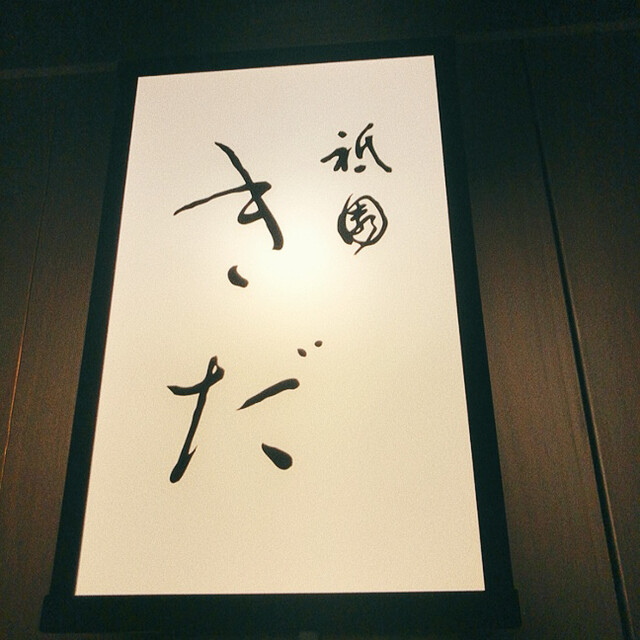 祇園
きだ